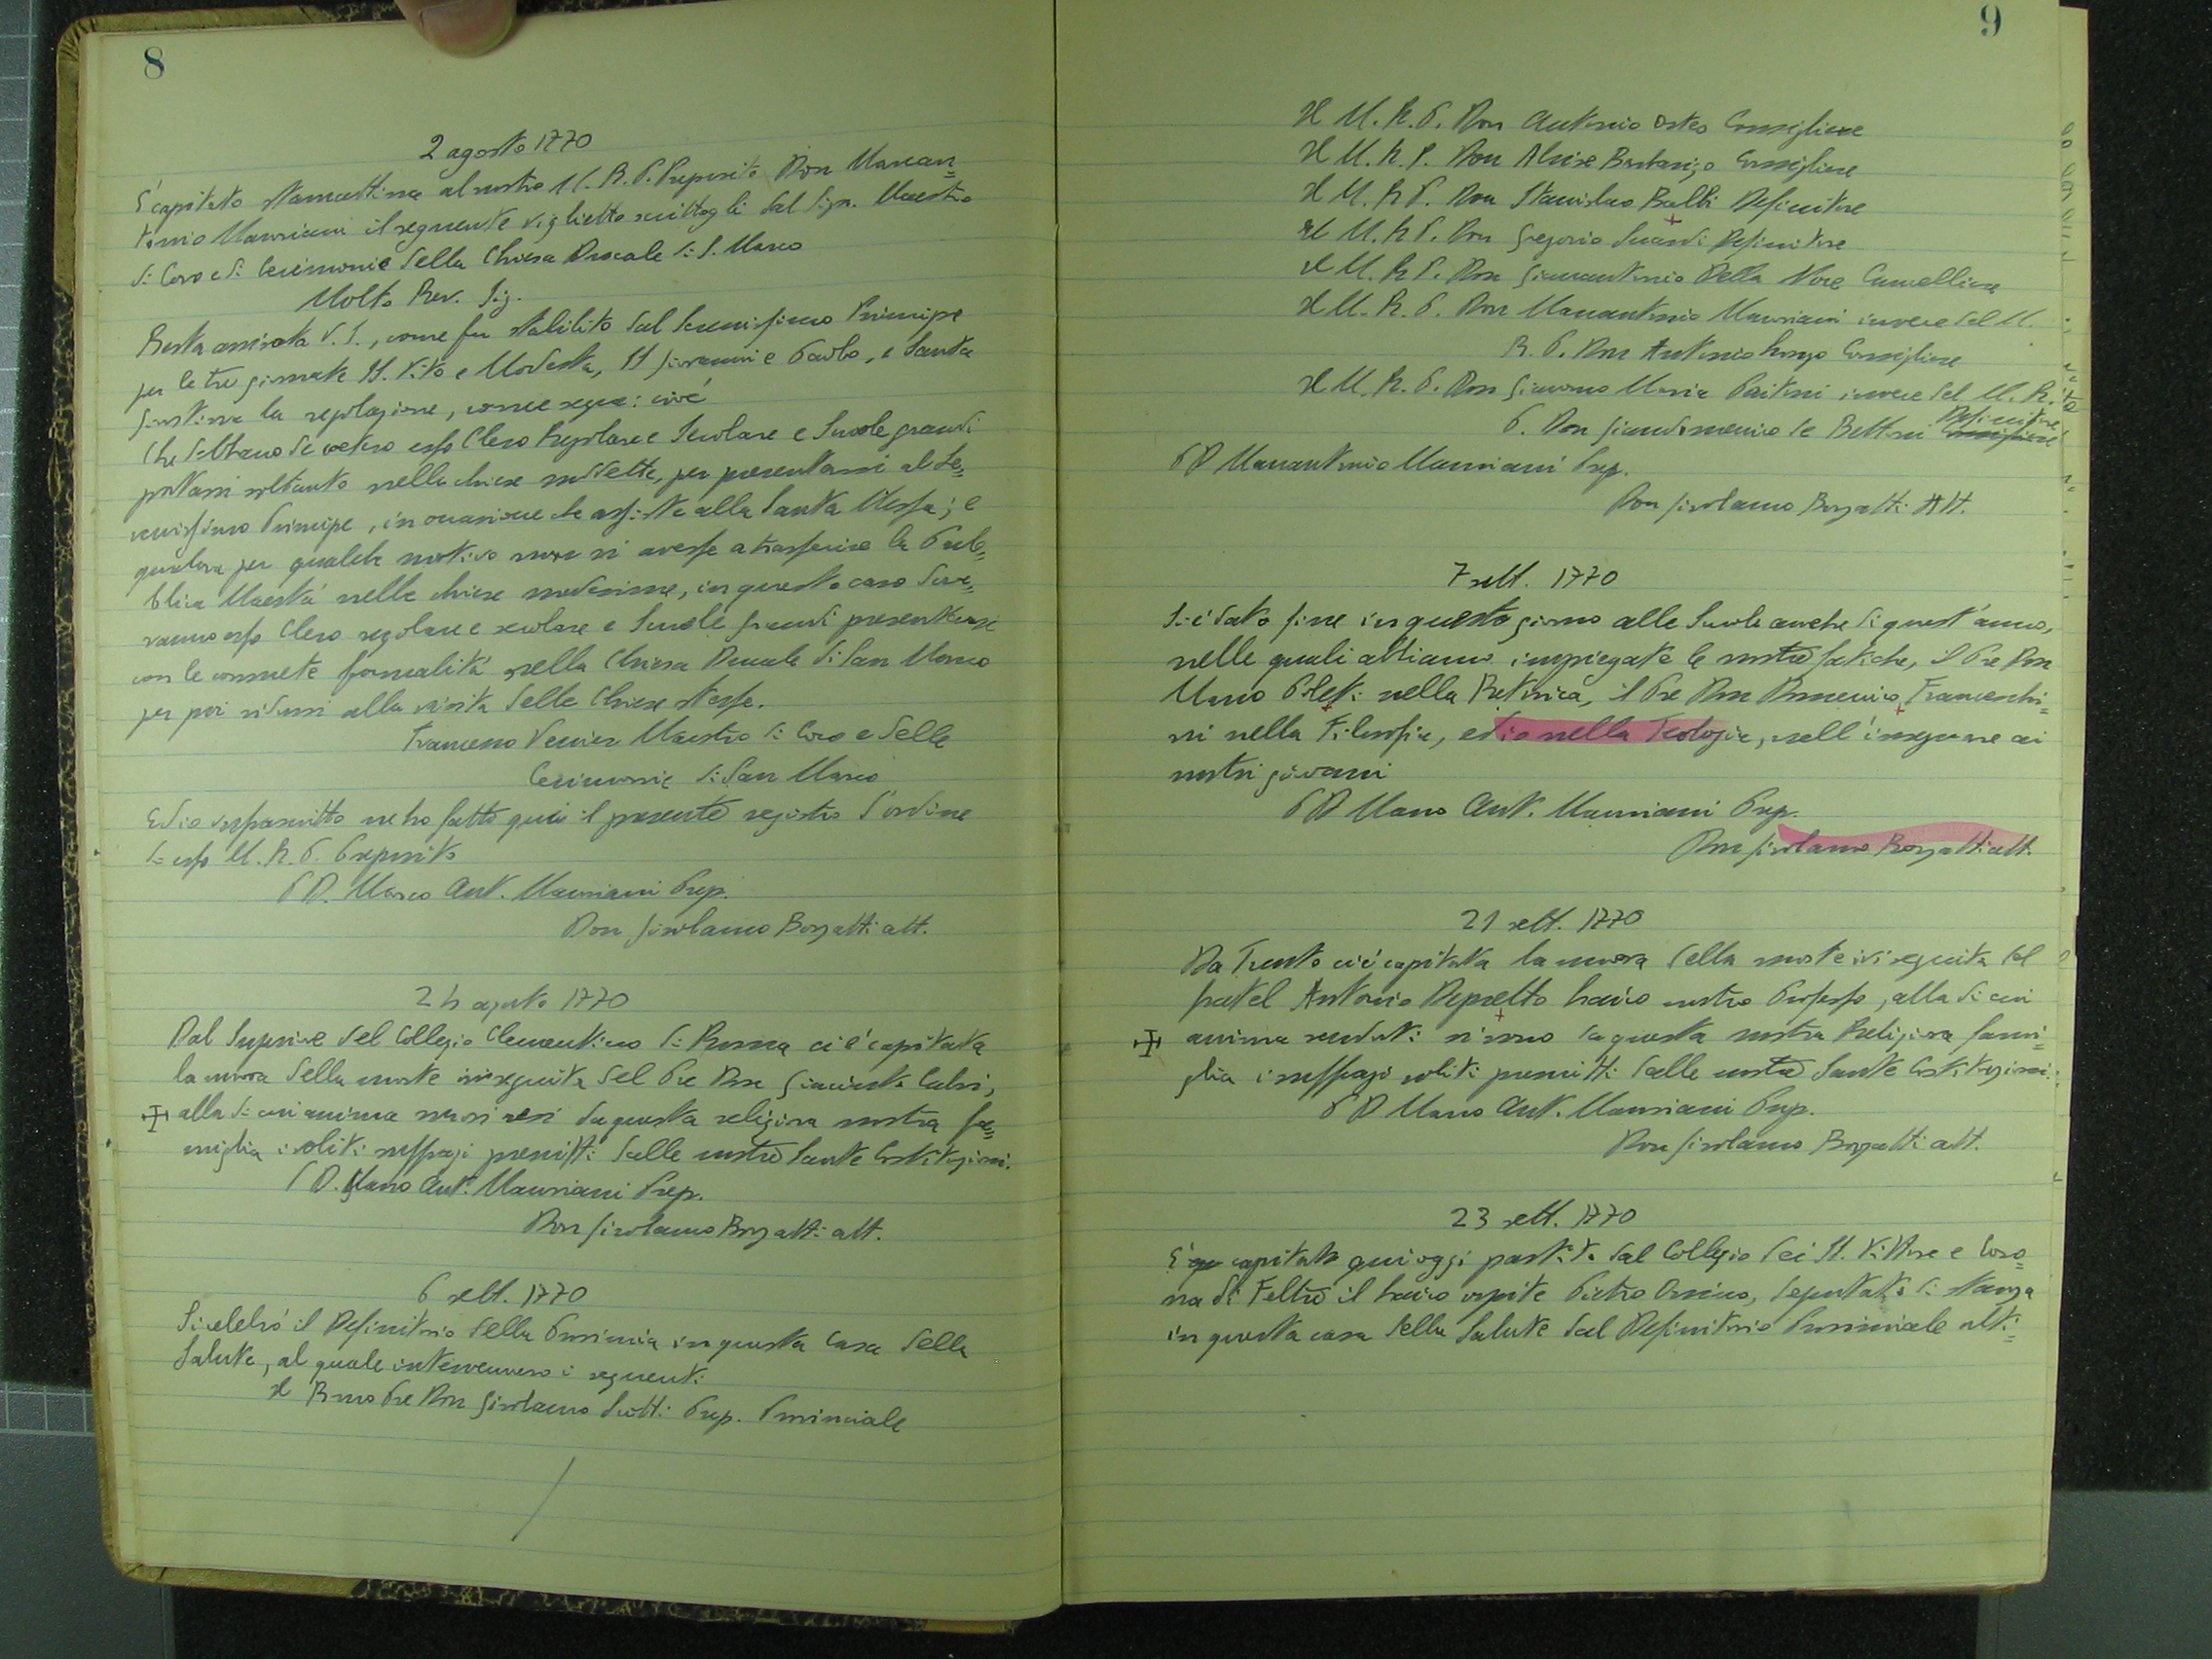 8
2 agosto 1770
É capitato stamattina al nostro M. R. P. Preposito Don Marcan=
tonio Mauriani il seguente viglietto scrittogli dal Sign. Maestro
di Coro e di Cerimonie della Chiesa Ducale di S. Marco
Molto Rev. Sig.
Resta avvisata V. S., come fu stabilito dal Serenissimo Principe
per le tre giornate SS. Vito e Modesta, SS Giovanni e Paolo, e Santa
Giustina la regolazione, come segue: cioé
Che d'ottano de esso Clero Regolare e Secolare e Scuole grandi
portarsi soltanto nelle chiese suddette, per presentarsi al Se=
renissimo Principe, in occasione che assiste alla Santa Messa; e
qualora per qualche motivo non si avesse a trasferire la Pub=
blica Maestá nelle chiese medesime, in questo caso dove=
ranno esso Clero regolare e secolare e Scuole grandi presentarsi
con le consuete formalitá nella Chiesa Ducale di San Marco
per poi ridursi alla visita delle Chiese stesse.
Francesco Venier Maestro di Coro e delle
Cerimonie di San Marco
Ed io infrascritto ne ho fatto qui il presente registro d'ordine
di esso M. R. P. Preposito
P D. Marco Ant. Mauriani Prep.
Don Girolamo Bozatti att.
24 agosto 1770
Dal Superiore del Collegio Clementino di Roma ci é capitata
la nuova della morte ivi seguita del Pre Don Giacinto Calvi,
alla di cui anima si resi da questa religiosa nostra fa=
miglia i soliti suffragi prescritti dalle nostre Sante Costituzioni.
P D. Marco Ant. Mauriani Prep.
Don Girolamo Bozatti att.
6 sett. 1770
Si celebró il Definitorio della Provincia in questa Casa della
Salute, al quale intervennero i seguenti
Il Rmo Pre Don Girolamo Prep. Provinciale
9
Il M. R. P. Don Antonio Osteo Consigliere
Il M. R. P. Don Alvise Barbarigo Consigliere
Il M. R. P. Don Stanislao Balbi Definitore
Il M. R. P. Don Gregorio Definitore
Il M. R. P. Don Giannantonio Della Cancelliere
Il M. R. P. Don Marcantonio Mauriani invece del M.
R. P. Don Antonio Longo Consigliere
Il M. R. P. Don Giacomo Maria Paitoni invece del M. R.
P. Don Giandomenico de Bettoni Consigliere Definitore
P D Marcantonio Mauriani Prep.
Don Girolamo Bozatti Att.
7 sett. 1770
Si é dato fine in questo giorno alle Scuole anche di quest'anno,
nelle quali abbiamo impiegate le nostre fatiche, il Pre Don
Marco Poleti nella Rettorica, il Pre Don Domenico Franceschi=
ni nella Filosofia, ed io nella Teologia, nell'insegnare ai
nostri giovani
P D Marco Ant. Mauriani Prep.
Don Girolamo Bozatti att.
21 sett. 1770
Da Trento ci é capitata la nuova della morte ivi seguita del
fratel Antonio Depretto laico nostro Professo, alla di cui
anima renduti si sono da questa nostra Religiosa fami=
glia i suffragi soliti prescritti dalle nostre Sante Costituzioni.
P D Marco Ant. Mauriani Prep.
Don Girolamo Bozatti att.
23 sett. 1770
É capitato qui oggi partito dal Collegio dei SS. Vittore e Coro=
na di Feltre il laico ospite Pietro, deputato di stanza
in questa casa della Salute dal Definitorio Provinciale ulti=